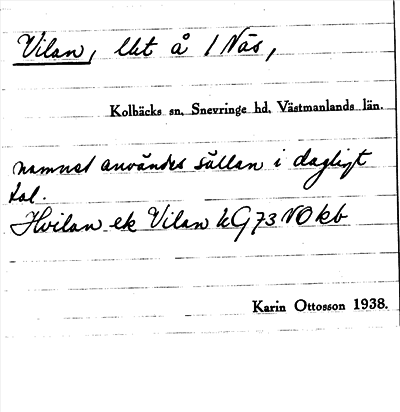 Vilan, lht å 1 Näs,
Kolbäcks sn, Snevringe hd, Västmanlands län.
namnet användes sällan i dagligt
tal.
Hvilan ek Vilan hG 73 NO kb
Karin Ottosson 1938.